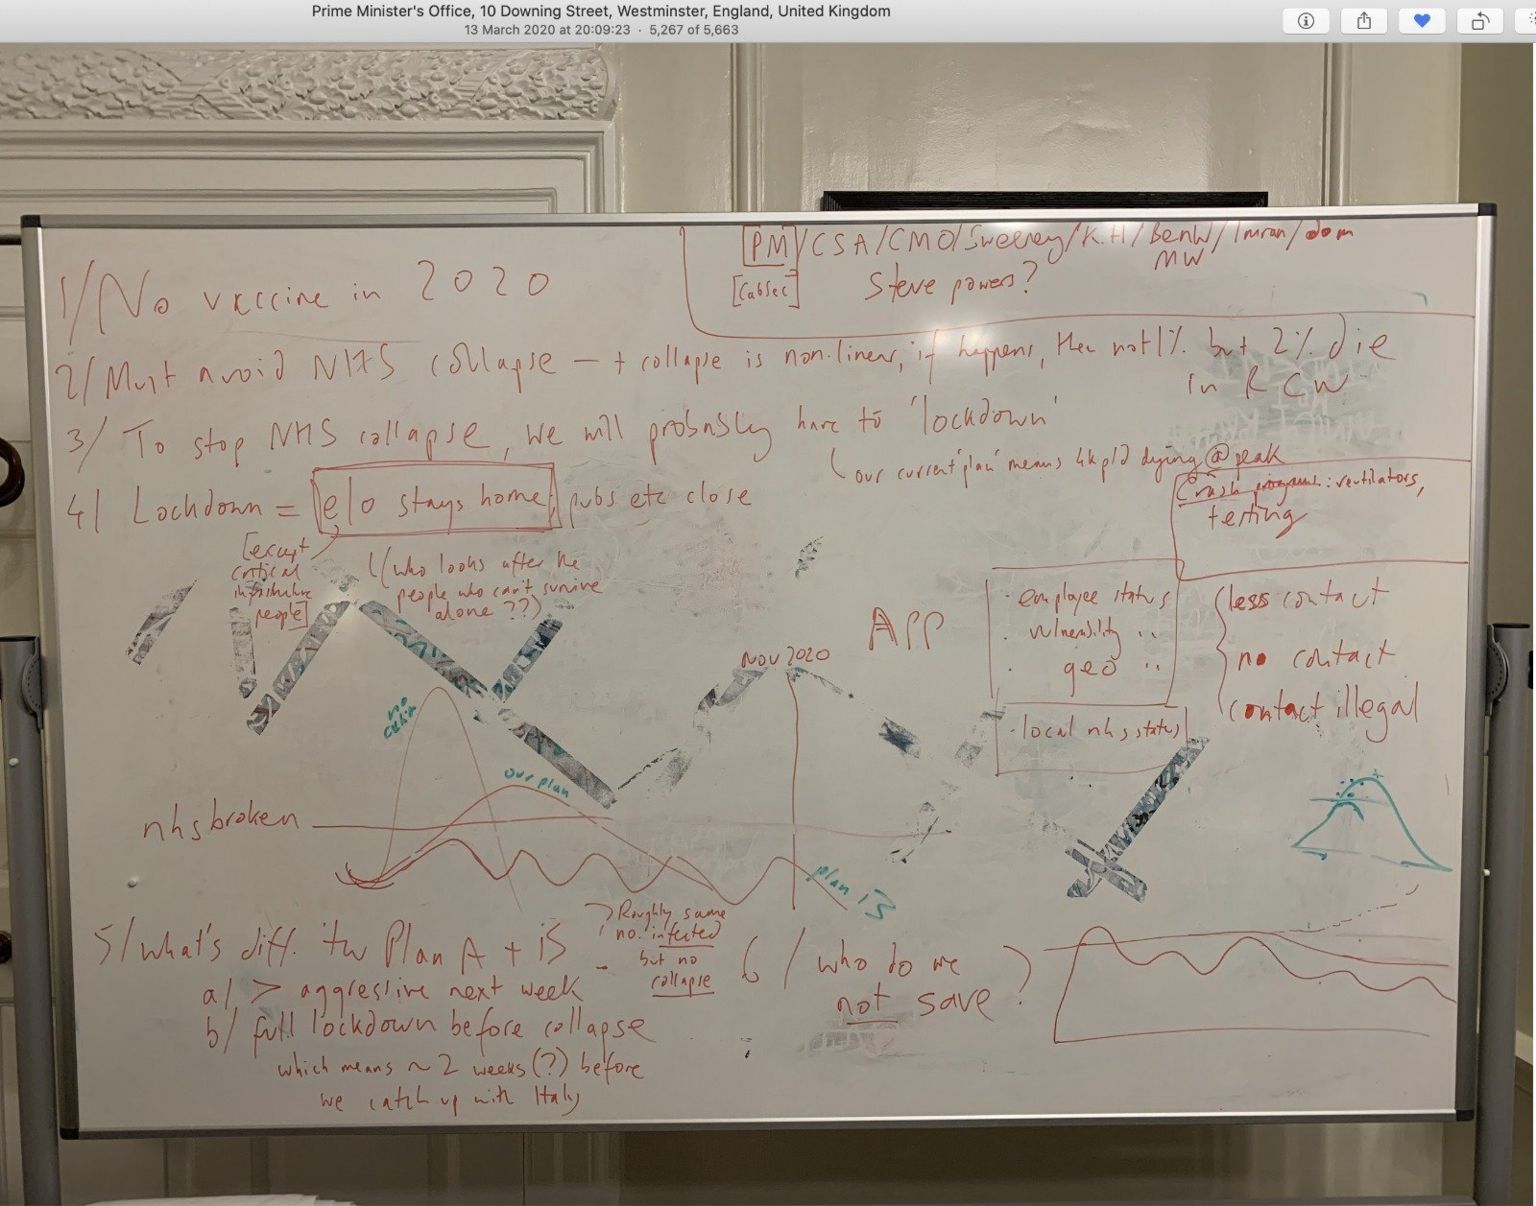 Prime Minister's Office, 10 Downing Street, Westminster, England, United Kingdom
13 March 2020 at 20:09:23 · 5,267 of 5,663
PM/CSA/CMO/Sweeney/K.H/BenW/Imran/dom
MW
[CabSec] Steve powers?
1/ No vaccine in 2020
2/ Must avoid NHS collapse — + collapse is non-linear, if happens, then not 1% but 2% die
in RCW
3/ To stop NHS collapse, we will probably have to 'lockdown'
our current 'plan' means 4k p/d dying @ peak
4/ Lockdown = e/o stays home, pubs etc close
[except
critical
infrastructure
people]
(who looks after the
people who can't survive
alone ??)
Crash programs: ventilators,
testing
APP
· employee status
· vulnerability ''
· geo ''
· local nhs status
less contact
no contact
contact illegal
Nov 2020
no
our plan
nhs broken
plan iS
5/ What's diff. tw Plan A + iS
Roughly same
no. infected
but no
collapse
a/ > aggressive next week
b/ full lockdown before collapse
which means ~ 2 weeks (?) before
we catch up with Italy
6/ who do we
not save ?